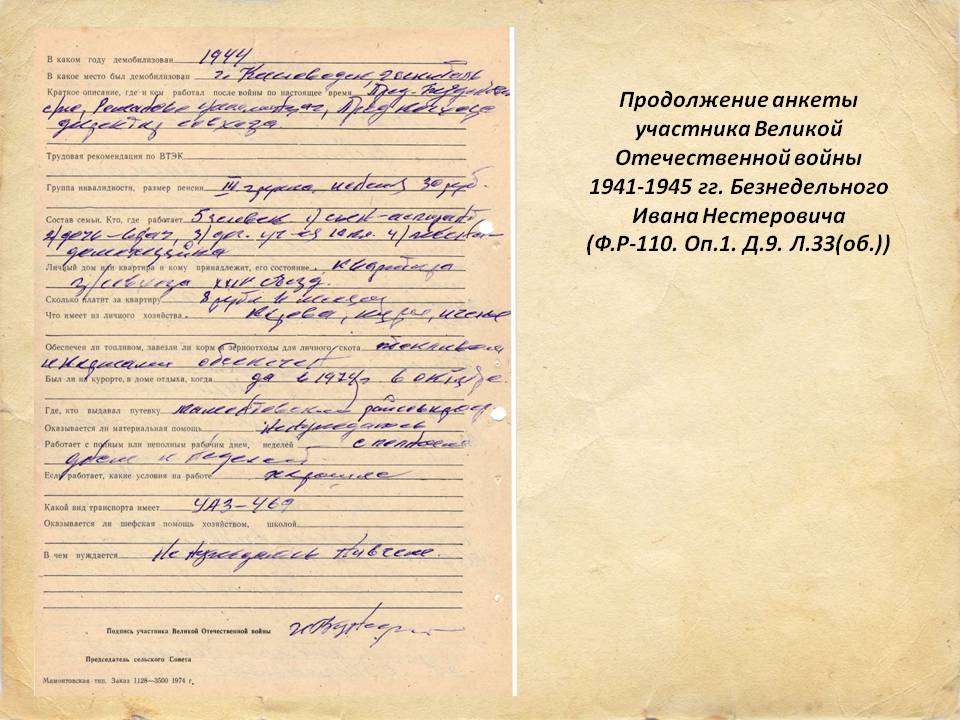 В каком году демобилизован 1944
В какое место был демобилизован г. Кисловодск, госпиталь
Краткое описание, где и кем работал после войны по настоящее время Пред.
директор совхоза.
Трудовая рекомендация по ВТЭК
Группа инвалидности, размер пенсии III группа, 30 руб.
Состав семьи. Кто, где работает 5 человек 1) сын-аспирант
2) дочь-врач, 3) 10 кл. 4)
домохозяйка
Личный дом или квартира и кому принадлежит, его состояние. квартира
з/совхоза XXIV съезд.
Сколько платит за квартиру 8 рубл в месяц
Что имеет из личного хозяйства. корова,
Обеспечен ли топливом, завезли ли корм и зерноотходы для личного скота. топливом
обеспечен
Был ли на курорте, в доме отдыха, когда да в 1974г. в октябре.
Где, кто выдавал путевку Мамонтовский
Оказывается ли материальная помощь Не нуждаюсь
Работает с полным или неполным рабочим днем, неделей с полным
днем и неделей
Если работает, какие условия на работе хорошие
Какой вид транспорта имеет УАЗ-469
Оказывается ли шефская помощь хозяйством, школой
В чем нуждается Не нуждаюсь ни в чем.
Подпись участника Великой Отечественной войны
Председатель сельского Совета
Мамонтовская тип. Заказ 1128—3500 1974 г.
Продолжение анкеты
участника Великой
Отечественной войны
1941-1945 гг. Безнедельного
Ивана Нестеровича
(Ф.Р-110. Оп.1. Д.9. Л.33(об.))